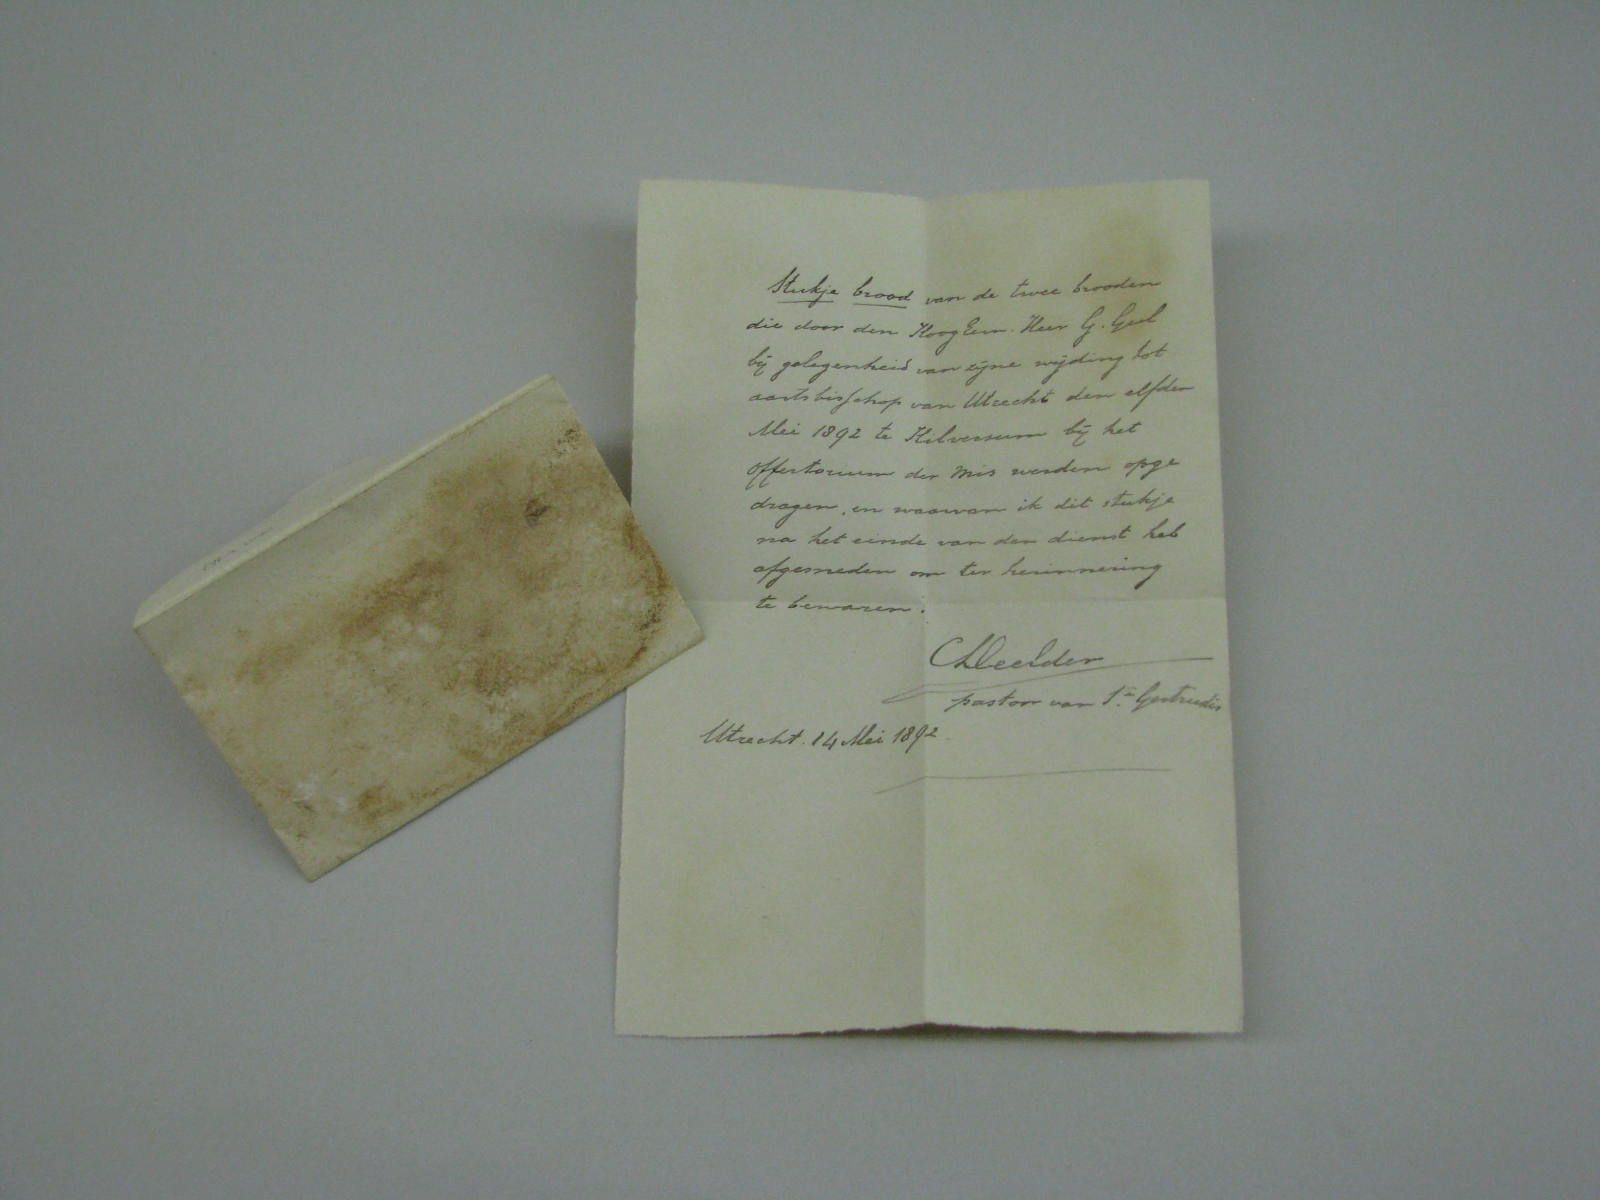 Stukje brood van de twee brooden
die door den HoogEerw. Heer G. Gul
bij gelegenheid van zijne wijding tot
aartsbisschop van Utrecht den elfden
Mei 1892 te Hilversum bij het
offertorium der Mis werden opge
dragen, en waarvan ik dit stukje
na het einde van den dienst heb
afgesneden om ter herinnering
te bewaren.
Deelder
pastoor van Ste Gertrudis
Utrecht. 14 Mei 1892